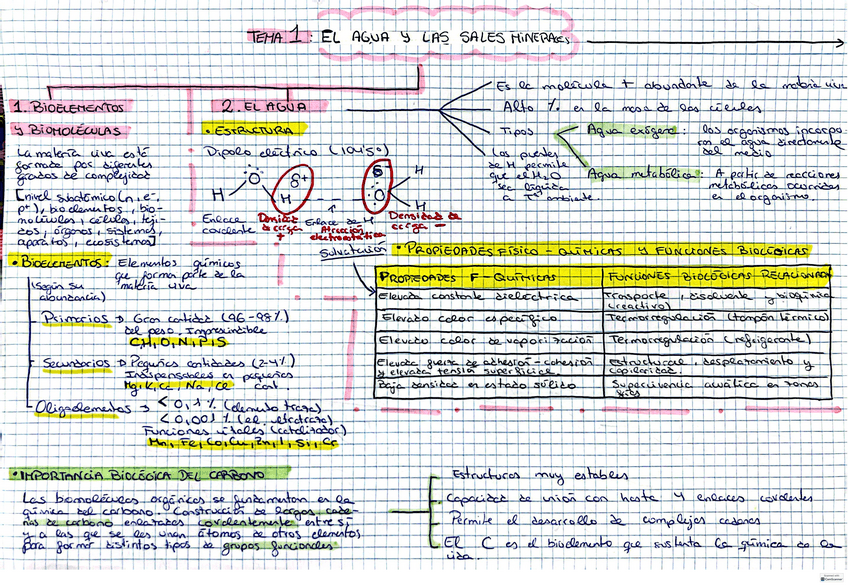 TEMA 1: EL AGUA Y LAS SALES MINERALES
1. BIOELEMENTOS
Y BIOMOLÉCULAS
La materia viva está
formada por diferentes
grados de complejidad
[nivel subatómico (n, e-,
p+), bioelementos, bio-
moléculas, células, teji-
dos, órganos, sistemas,
aparatos, ecosistemas]
• BIOELEMENTOS: Elementos químicos
que forma parte de la
materia viva
(según su
abundancia)
Primarios → Gran cantidad (96-98%)
del peso. Imprescindible
C, H, O, N, P, S
Secundarios → Pequeña cantidades (2-4%)
Indispensables en pequeñas
cant.
Mg, K, Cl, Na, Ca
Oligoelementos → < 0,1% (elemento traza)
< 0,001% (el. ultratraza)
Funciones vitales (catalizador)
Mn, Fe, Co, Cu, Zn, I, Si, Cr
2. EL AGUA
• ESTRUCTURA
Dipolo eléctrico (104'5°)
O
δ+
H
H
δ-
O
H
H
Enlace
covalente
Densidad
de carga
+
Enlace de H
Atracción
electrostática
Densidad de
carga -
Solvatación
Es la molécula + abundante de la materia viva
Alto % en la masa de las células
Tipos
Agua exógena: los organismos incorpo-
ran el agua directamente
del medio
Agua metabólica: A partir de reacciones
metabólicas ocurridas
en el organismo
Los puentes
de H permite
que el H2O
sea líquida
a Tª ambiente.
• PROPIEDADES FÍSICO-QUÍMICAS Y FUNCIONES BIOLÓGICAS
PROPIEDADES F-QUÍMICAS
FUNCIONES BIOLÓGICAS RELACIONADA
Elevada constante dieléctrica
Transporte, disolvente y bioquímica
(reactivo)
Elevado calor específico
Termorregulación (tampón térmico)
Elevado calor de vaporización
Termorregulación (refrigerante)
Elevada fuerza de adhesión-cohesión
y elevada tensión superficial
Estructural, desplazamiento y
capilaridad.
Baja densidad en estado sólido
Supervivencia acuática en zonas
frías
• IMPORTANCIA BIOLÓGICA DEL CARBONO
Las biomoléculas orgánicas se fundamentan en la
química del carbono. Construcción de largas cade-
nas de carbono enlazadas covalentemente entre sí
y a las que se les unen átomos de otros elementos
para formar distintos tipos de grupos funcionales
Estructuras muy estables
Capacidad de unión con hasta 4 enlaces covalentes
Permite el desarrollo de complejas cadenas
El C es el bioelemento que sustenta la química de la
vida.